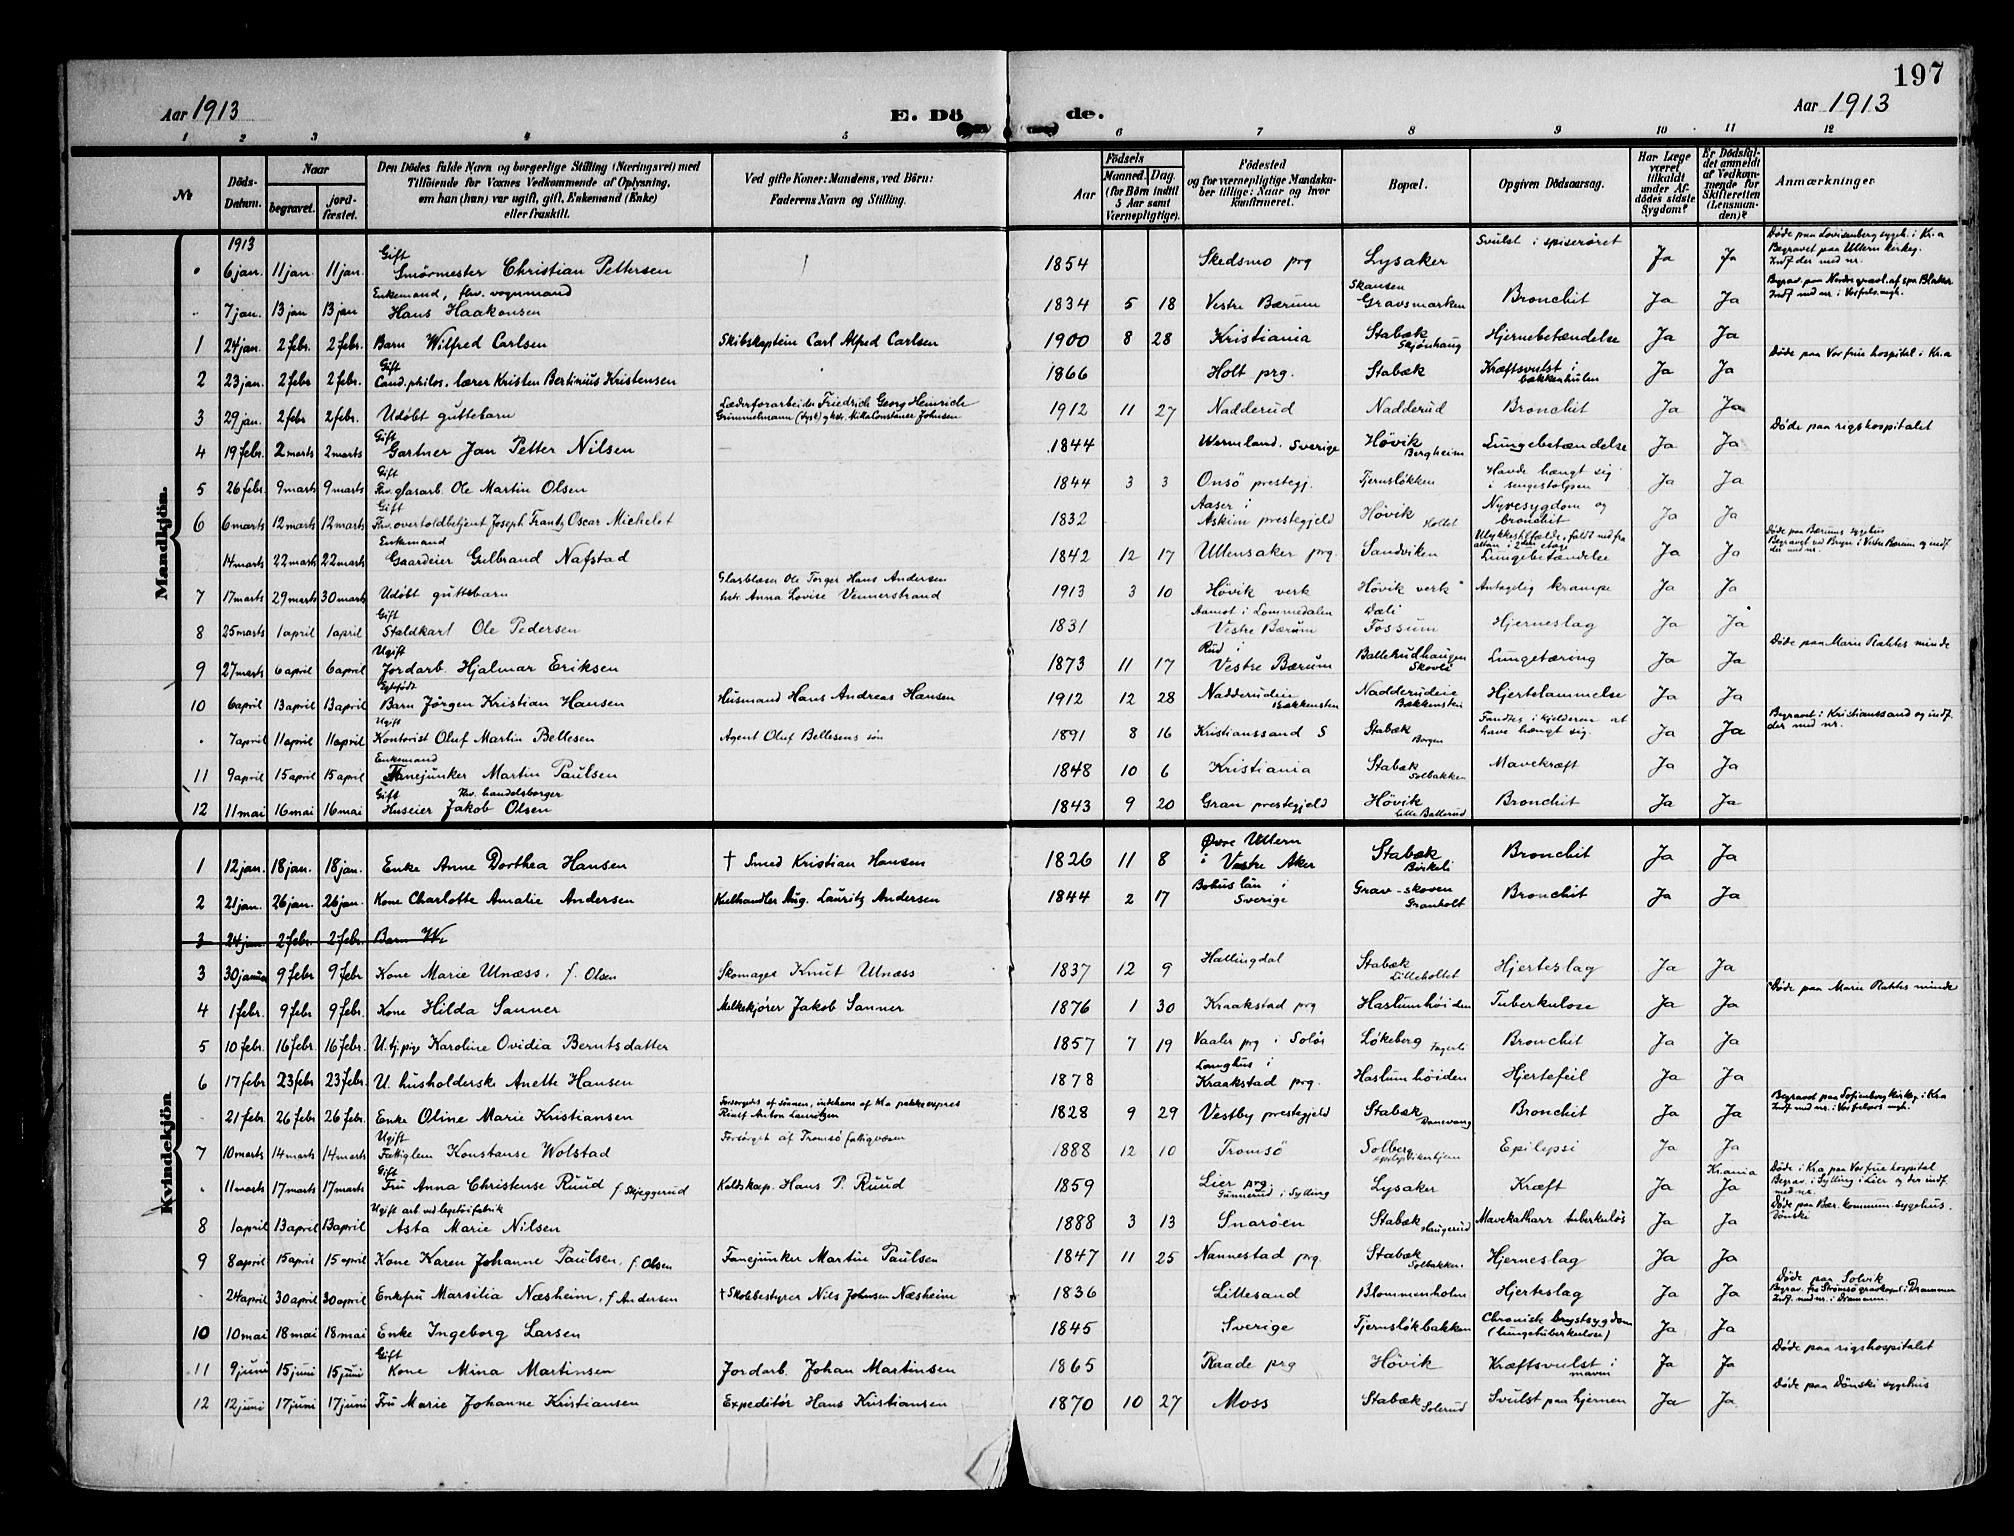 197
Aar 1913 E. Dö de. Aar 1913
1 2 3 4 5 6 7 8 9 10 11 12
No Döds-Datum. Naar begravet. jordfæstet. Den Dödes fulde Navn og borgerlige Stilling (Næringsvei) med Tilföiende for Voxnes Vedkommende af Oplysning, om han (hun) var ugift, gift, Enkemand (Enke) eller fraskilt. Ved gifte Koner: Mandens, ved Börn: Faderens Navn og Stilling. Födsels Aar Maaned. Dag. (for Börn indtil 5 Aar samt Værnepligtige). Födested og for værnepligtige Mandskaber tillige: Naar og hvor konfirmeret. Bopæl. Opgiven Dödsaarsag. Har Læge været tilkaldt under Afdödes sidste Sygdom? Er Dödsfaldet anmeldt af Vedkommende for Skifteretten (Lensmanden)? Anmærkninger
Mandkjön.
1913
6 jan. 11 jan. 11 jan. Gift Smörmester Christian Pettersen 1854 Skedsmo prg Lysaker Svulst i spiserøret Ja Ja Døde paa Lovisenberg sygeh. i Kr.a Begravet paa Ullern kirkeg. Indf der med nr.
7 jan. 13 jan 13 jan Enkemand, fhv. vognmand Hans Haakonsen 1834 5 18 Vestre Bærum Skansen Gravsmarken Bronchit Ja Ja
1 24 jan. 2 febr. 2 febr. Barn Wilfred Carlsen Skibskaptein Carl Alfred Carlsen 1900 8 28 Kristiania Stabæk Skjønhaug Hjernebetændelse Ja Ja
2 23 jan. 2 febr 2 febr. Gift Cand. philos. lærer Kristen Bertinius Kristensen 1866 Holt prg. Stabæk Kræftsvulst i bækkenhulen Ja Ja Døde paa Vor frue hospital i Kr.a
3 29 jan. 2 febr 2 febr. Udøbt guttebarn Læderforarbeider Friedrich Georg Heinrich Grimmelmann 1912 11 27 Nadderud Nadderud Bronchit Ja Ja
4 19 febr. 2 marts 2 marts Gift Gartner Jan Petter Nilsen 1844 Wermland. Sverige Høvik Bergheim Lungebetændelse Ja Ja Døde paa rigshospitalet
5 26 febr. 9 marts 9 marts Gift Fhv. glasarb. Ole Martin Olsen 1844 3 3 Onsö prestegj. Tjernsløkken Havde hængt sig i sengestolpen Ja Ja
6 6 marts 12 marts 12 marts Gift Fhv. overtoldbetjent Joseph Frantz Oscar Michelet 1832 Aaser i Askim prestegjeld Høvik Holtet Nyresygdom og bronchit Ja Ja
14 marts 22 marts 22 marts Enkemand Gaardeier Gulbrand Nafstad 1842 12 17 Ullensaker prg. Sandviken Lungebetændelse Ja Ja Døde paa Bærums sygehus Begravet ved Bryn i Vestre Bærum og indf. der med nr.
7 17 marts 29 marts 30 marts Udøbt guttebarn Glasblæser Ole Torger Hans Andersen hstr. Anna Lovise Vennerstrand 1913 3 10 Høvik verk Høvik verk Antagelig krampe Ja Ja
8 25 marts 1 april 1 april Gift Staldkarl Ole Pedersen 1831 Aamot i Lommedalen Vestre Bærum Dæli Fossum Hjerneslag Ja Ja
9 27 marts 6 april 6 april Ugift Jordarb. Hjalmar Eriksen 1873 11 17 Rud i Vestre Bærum Ballerudhaugen Skovli Lungetæring Ja Ja Døde paa Marie Plahtes minde
10 6 april 13 april 13 april Egtefödt Barn Jörgen Kristian Hansen Husmand Hans Andreas Hansen 1912 12 28 Nadderudeie Bækkensten Nadderudeie Bækkensten Hjertelammelse Ja Ja
7 april 11 april 11 april Ugift Kontorist Oluf Martin Bellesen Agent Oluf Bellesens sön 1891 8 16 Kristianssand S Stabæk Borgen Fandtes i kjelderen at have hængt sig. Ja Ja Begravet i Kristianssand og indf. der med nr.
11 9 april 15 april 15 april Enkemand Fanejunker Martin Paulsen 1848 10 6 Kristiania Stabæk Solbakken Mavekræft Ja Ja
12 11 mai 16 mai 16 mai Gift Fhv. handelsborger Huseier Jakob Olsen 1843 9 20 Gran prestegjeld Høvik Lille Ballerud Bronchit Ja Ja
Kvindekjön
1 12 jan. 18 jan. 18 jan. Enke Anne Dorthea Hansen † Smed Kristian Hansen 1826 11 8 Øvre Ullern i Vestre Aker Stabæk Birkeli Bronchit Ja Ja
2 21 jan. 26 jan. 26 jan. Kone Charlotte Amalie Andersen Kulhandler Aug. Lauritz Andersen 1844 2 17 Bohuslän i Sverige Grav-skoven Granholt Bronchit Ja Ja
3 24 jan. 2 febr. 2 febr. Barn W.
3 30 januar 9 febr 9 febr Kone Marie Unæss, f. Olsen Skomager Knut Unæss 1837 12 9 Hallingdal Stabæk Lilleholtet Hjerteslag Ja Ja
4 1 febr. 9 febr 9 febr. Kone Hilda Sanner Melkekjører Jakob Sanner 1876 1 30 Kraakstad prg Haslumhøiden Tuberkulose Ja Ja Døde paa Marie Plahtes minde
5 10 febr. 16 febr. 16 febr. U. tj. pige Karoline Ovidia Berntsdatter 1857 7 19 Vaaler prg i Solör Løkeberg Fagerli Bronchit Ja Ja
6 17 febr 23 febr 23 febr. U. husholderske Anette Hansen 1878 Langhus i Kraakstad prg. Haslumhøiden Hjertefeil Ja Ja
21 febr. 26 febr. 26 febr. Enke Oline Marie Kristiansen 1828 9 29 Vestby prestegjeld Stabæk Danevang Bronchit Ja Ja Begravet paa Sofienberg kirkeg. i Kr.a
7 10 marts 14 marts 14 marts Ugift Fattiglem Konstanse Wolstad Forsörget af Tromsö fatigvæsen 1888 12 10 Tromsö Solberg Epilepsi Ja Ja
11 marts 17 marts 17 marts Gift Fru Anna Christense Ruud f. Skjeggerud Kaldskap. Hans P. Ruud 1859 Lier prg. Gunnerud i Sylling Lysaker Kræft Ja Ja Døde i Kr.a paa Vor frue hospital Begrav. i Sylling i Lier og der indf. med nr.
8 1 april 13 april 13 april Ugift arb ved legetöifabrik Asta Marie Nilsen 1888 3 13 Snarøen Stabæk Haugerud Mavekatharr tuberkuløs Ja Ja Døde paa Bær. kommun. sygehus. Dönski
9 8 april 15 april 15 april Kone Karen Johanne Paulsen, f. Olsen Fanejunker Martin Paulsen 1847 11 25 Nannestad prg. Stabæk Solbakken. Hjerneslag Ja Ja
24 april 30 april 30 april Enkefru Marsilia Næsheim, f Andersen † Skolebestyrer Nils Johnsen Næsheim 1836 Lillesand Blommenholm Hjerteslag Ja Ja Døde paa Solvik Begrav. fra Strömsö gravkapel i Drammen Indf. med nr. i Drammen.
10 10 mai 18 mai 18 mai Enke Ingeborg Larsen 1845 Sverige Tjernsløkbakken Chronisk brystsygdom (lungetuberkulose) Ja Ja
11 9 juni 15 juni 15 juni Gift Kone Mina Martinsen Jordarb. Johan Martinsen 1865 Raade prg Høvik Kræftsvulst i maven Ja Ja Døde paa rigshospitalet
12 12 juni 17 juni 17 juni Fru Marie Johanne Kristiansen Expeditör Hans Kristiansen 1870 10 27 Moss Stabæk Solerud Svulst paa hjernen Ja Ja Døde paa Dönski sygehus